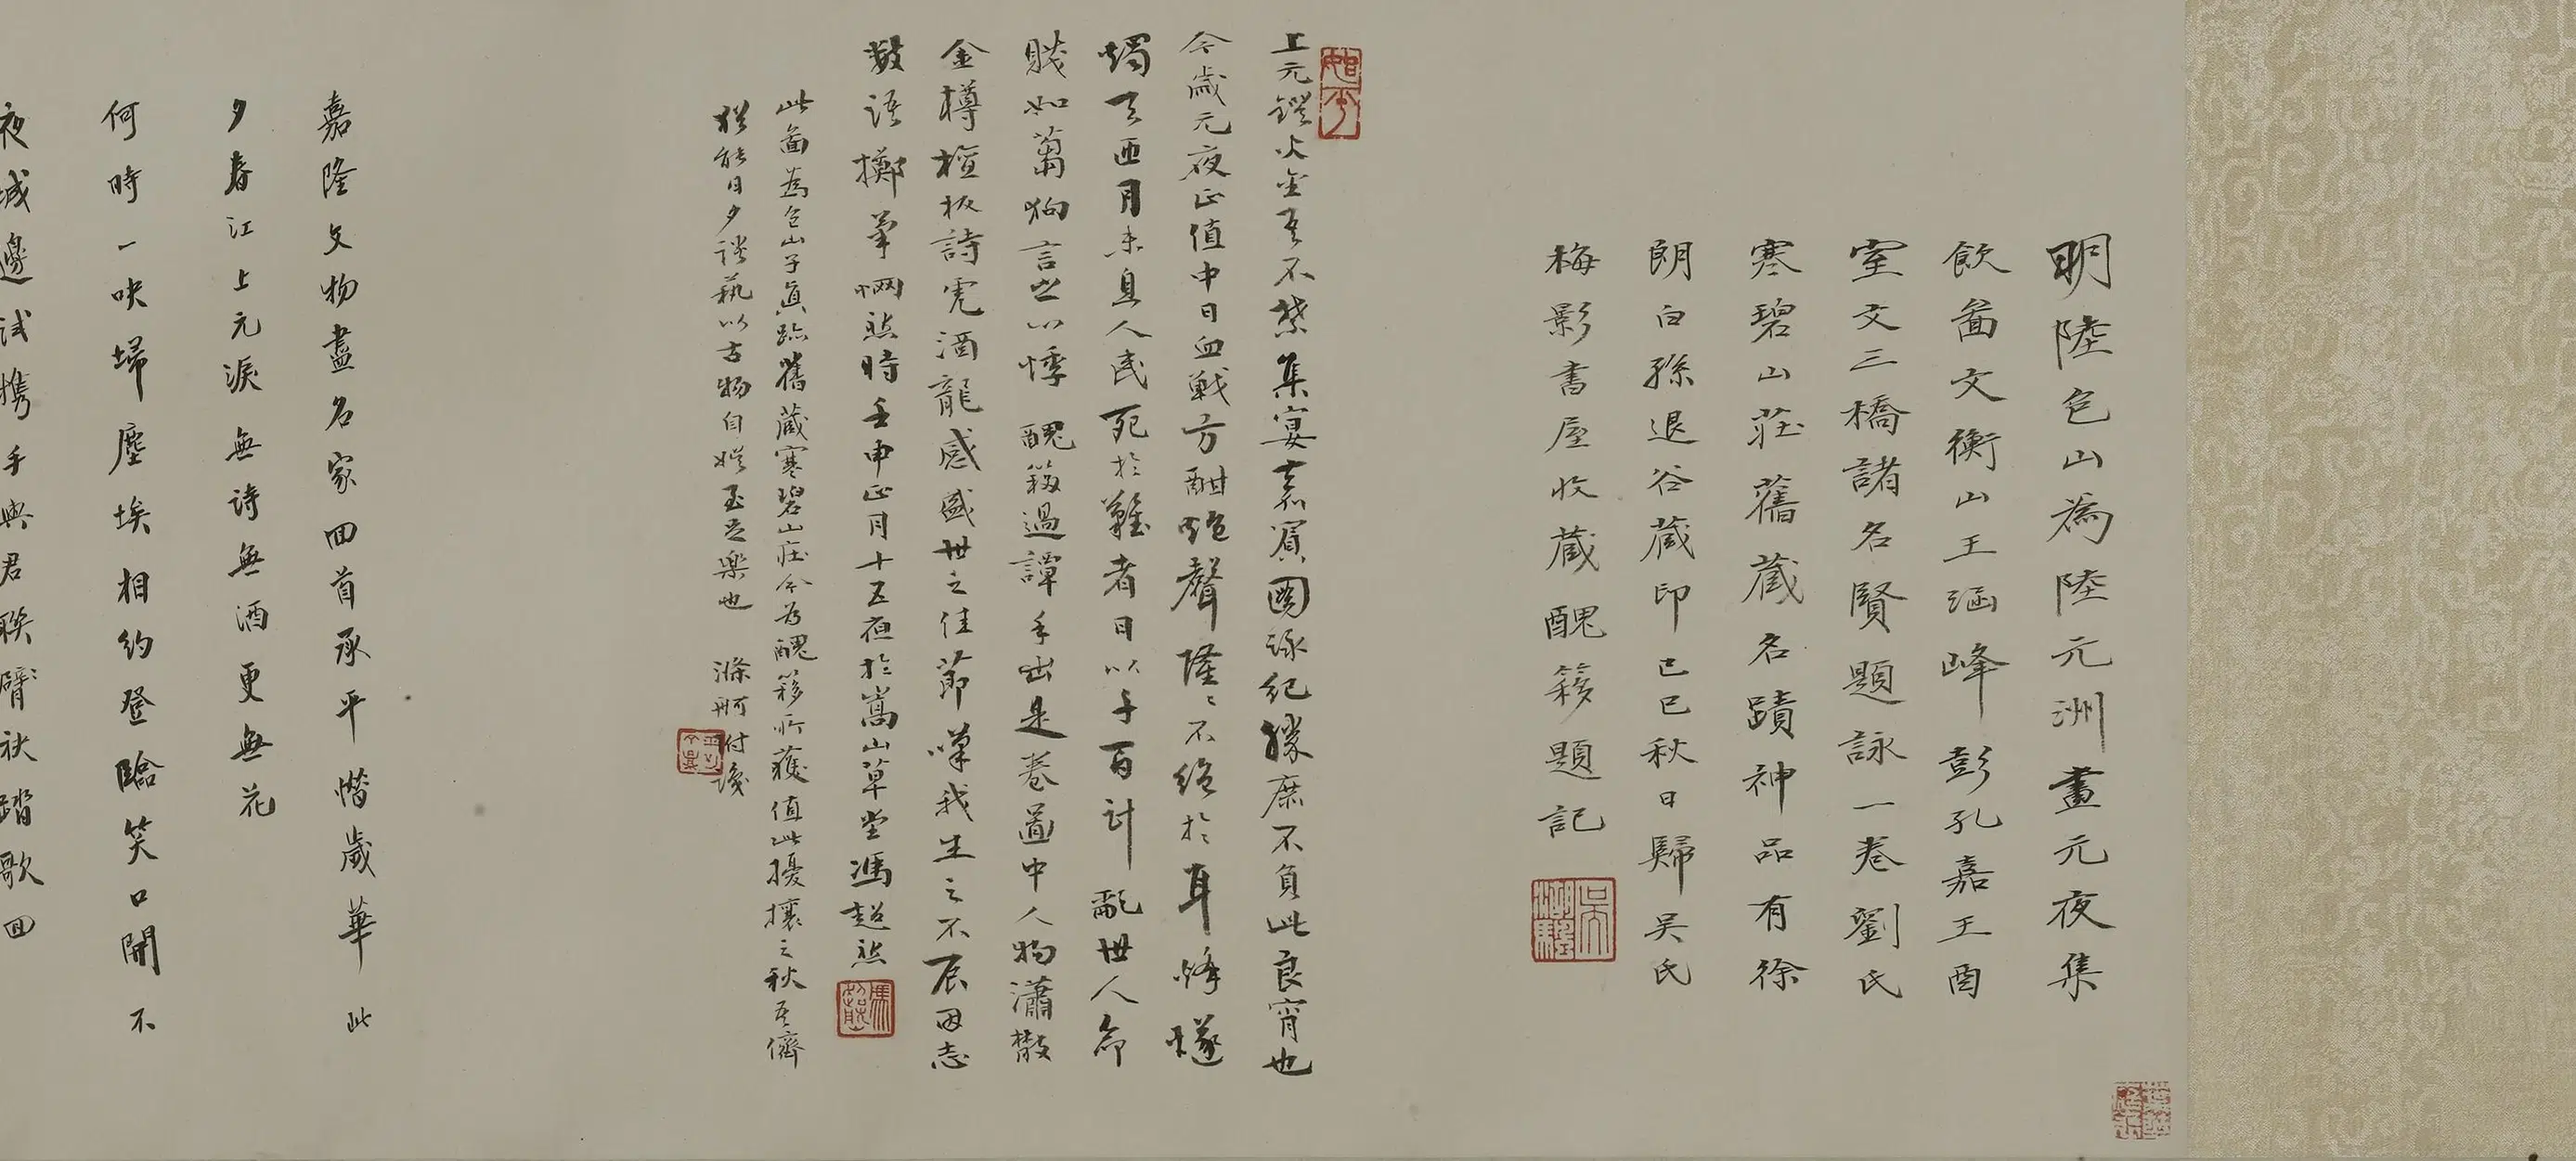 明陸包山為陸元洲畫元夜集
飲啚文衡山王涵峰彭孔嘉王酉
室文三橋諸名賢題詠一卷劉氏
寒碧山莊舊蔵名蹟神品有徐
朗白孫退谷蔵印己巳秋日歸吳氏
梅影書屋收蔵醜簃題記
上元鐙火金吾不禁集宴嘉賓圖詠紀勝庶不負此良宵也
今歲元夜正值中日血戰方酣砲聲隆隆不絕於耳烽燧
燭天血月未息人民死於難者日以千百計亂世人命
賤如蒭狗言之心悸醜簃過譚手出是卷圖中人物瀟散
金樽檀板詩虎酒龍感盛世之佳節嘆我生之不辰因志
數語擲筆惘然時壬申正月十五夜於嵩山草堂馮超然
此啚為包山子真跡舊蔵寒碧山莊今為醜簃所獲值此擾攘之秋吾儕
猶能日夕談藝以古物自娛至足樂也 滌舸付識
嘉隆文物盡名家回首承平惜歲華此
夕春江上元淚無詩無酒更無花
何時一吷埽塵埃相約登臨笑口開不
夜城邊試攜手與君聯臂袂踏歌回